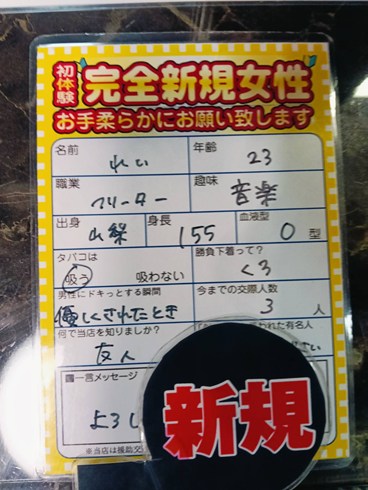 初体験
完全新規女性
お手柔らかにお願い致します
名前 れい 年齢 23
職業 フリーター 趣味 音楽
出身 山梨 身長 155 血液型 O 型
タバコは 吸う 吸わない 勝負下着って? くろ
男性にドキっとする瞬間 優しくされたとき 今までの交際人数 3 人
何で当店を知りましたか? 友人 われた有名人
さい
一言メッセージ
よろし
新規
※当店は援助交